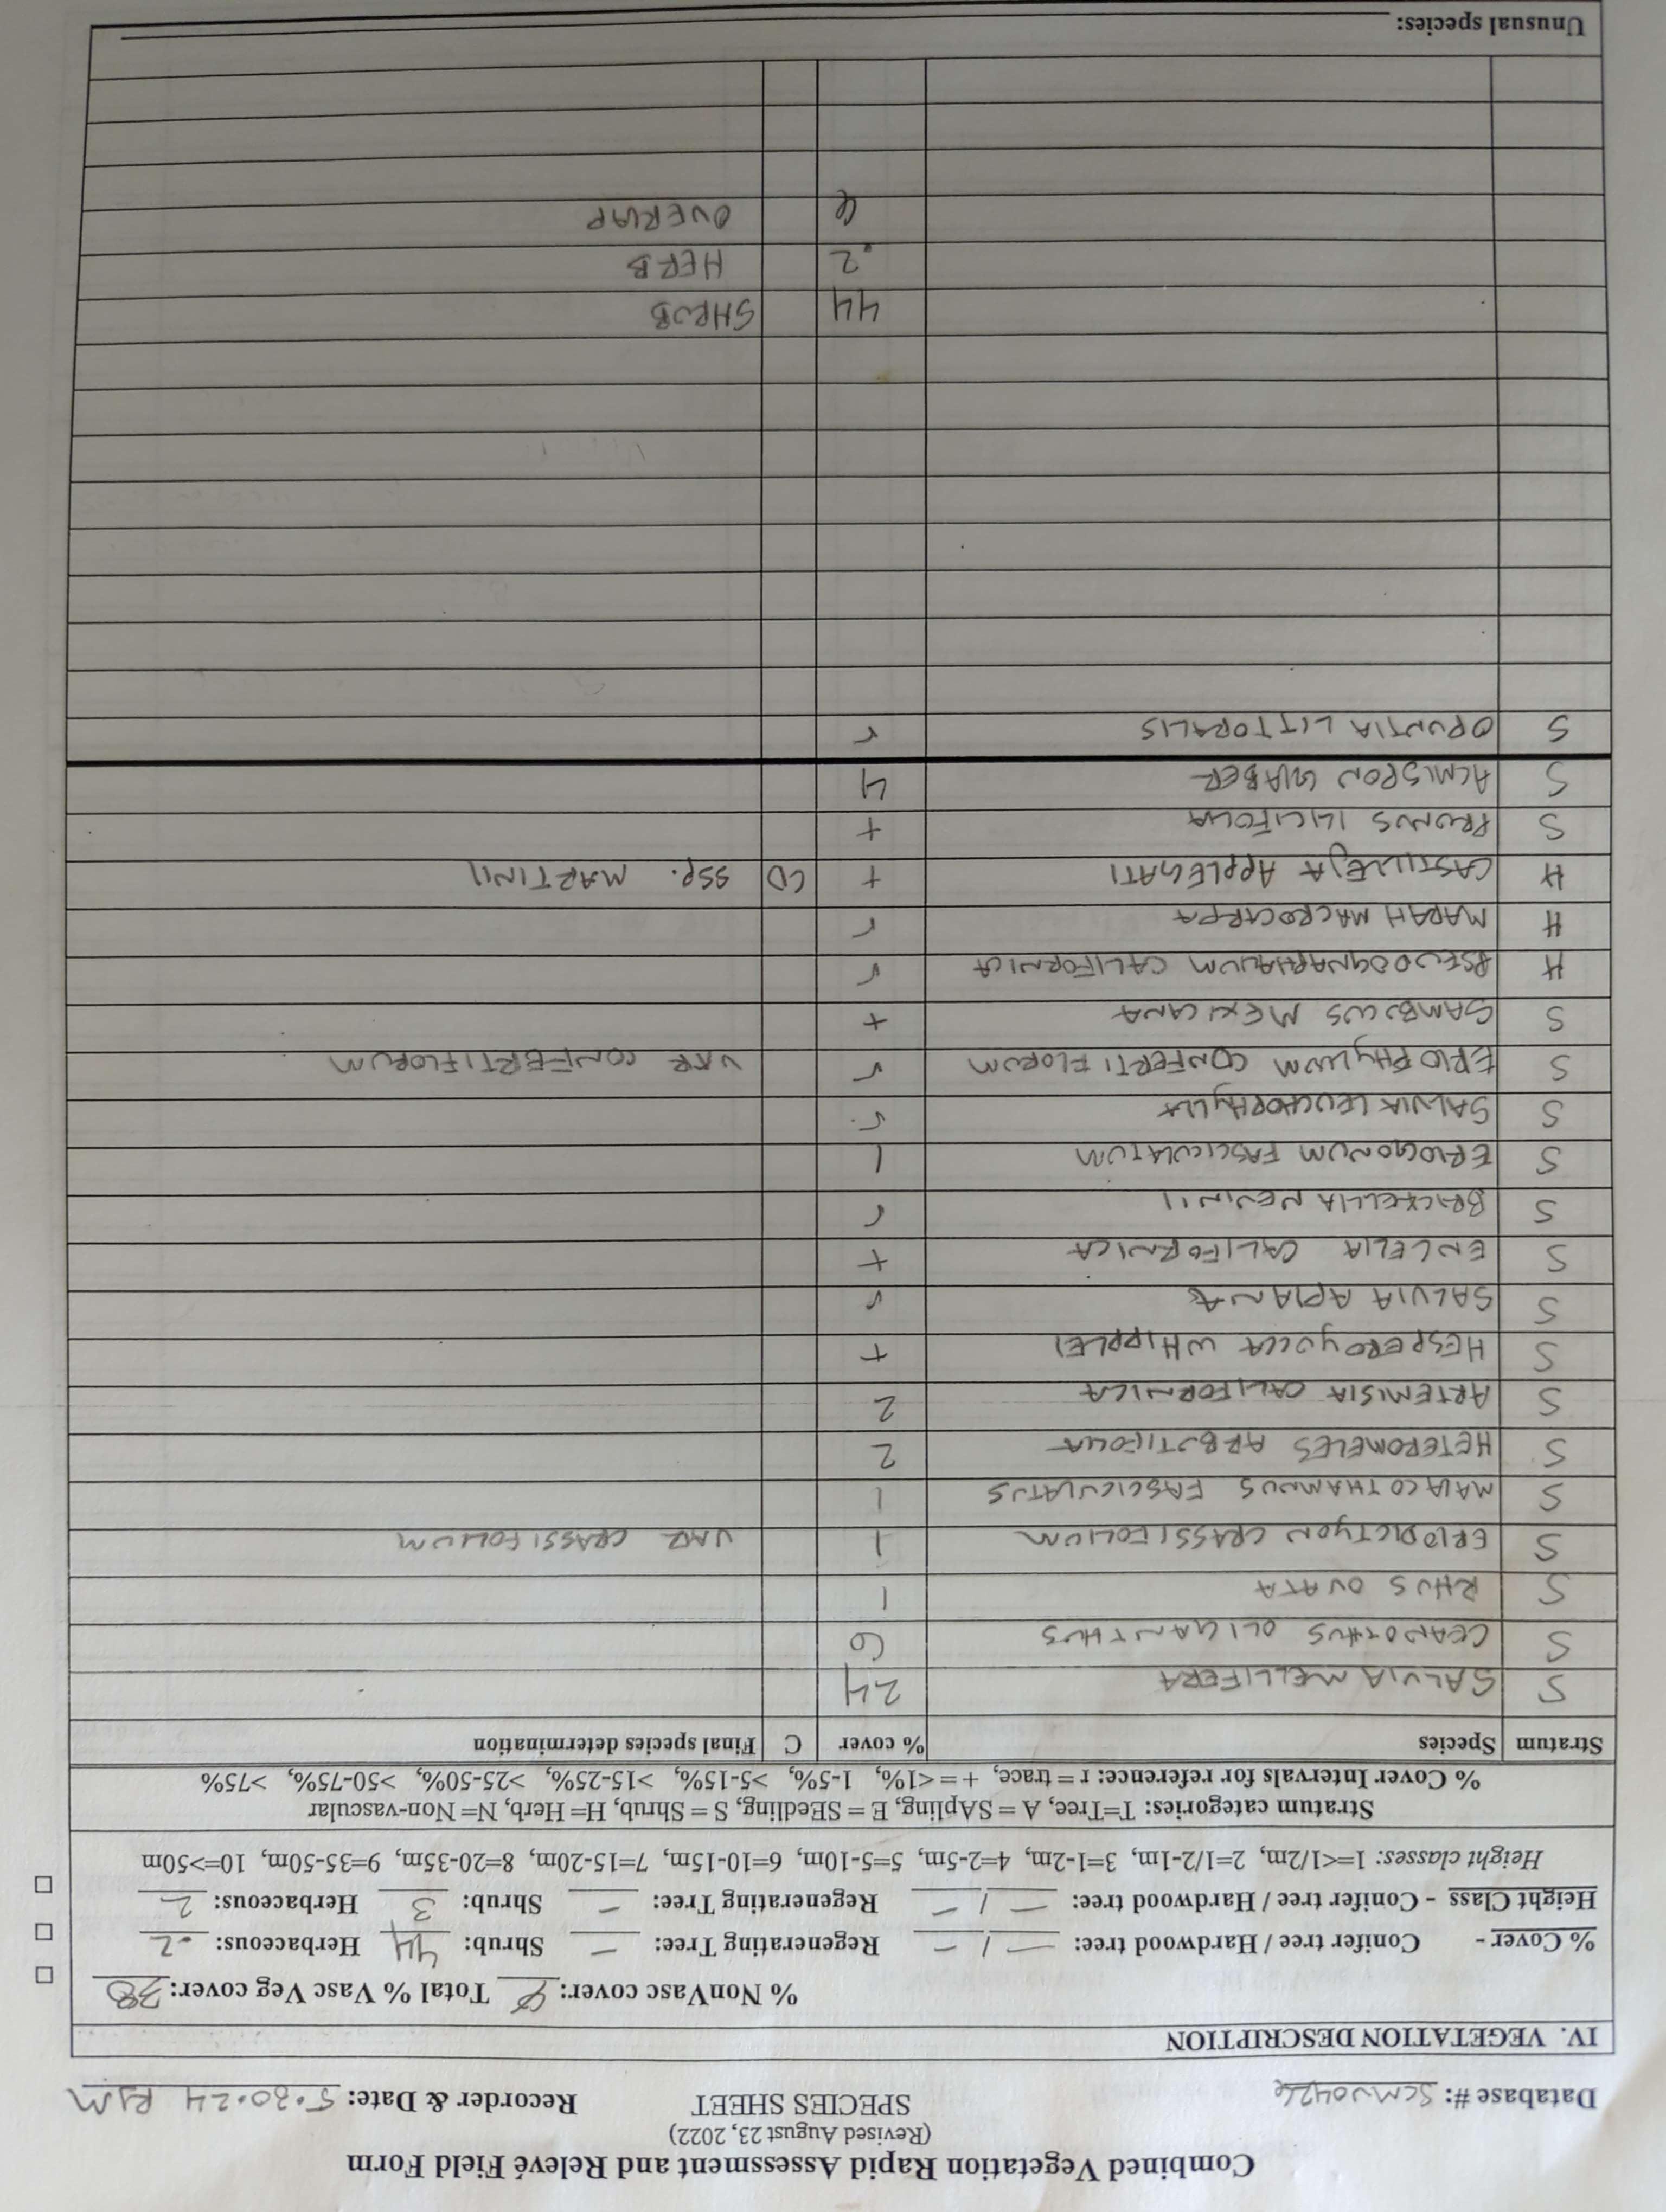 Combined Vegetation Rapid Assessment and Relevé Field Form
(Revised August 23, 2022)
SPECIES SHEET
Database #: SCMV0426 Recorder & Date: 5.30.24 RJM
IV. VEGETATION DESCRIPTION
% NonVasc cover: Ø Total % Vasc Veg cover: 38
% Cover - Conifer tree / Hardwood tree: — / — Regenerating Tree: — Shrub: 44 Herbaceous: .2
Height Class - Conifer tree / Hardwood tree: — / — Regenerating Tree: — Shrub: 3 Herbaceous: 2
Height classes: 1=<1/2m, 2=1/2-1m, 3=1-2m, 4=2-5m, 5=5-10m, 6=10-15m, 7=15-20m, 8=20-35m, 9=35-50m, 10=>50m
Stratum categories: T=Tree, A = SApling, E = SEedling, S = Shrub, H= Herb, N= Non-vascular
% Cover Intervals for reference: r = trace, + = <1%, 1-5%, >5-15%, >15-25%, >25-50%, >50-75%, >75%
Stratum Species % cover C Final species determination
S SALVIA MELLIFERA 24
S CEANOTHUS OLIGANTHUS 6
S RHUS OVATA 1
S ERIODICTYON CRASSIFOLIUM 1 VAR CRASSIFOLIUM
S MALACOTHAMNUS FASCICULATUS 1
S HETEROMELES ARBUTIFOLIA 2
S ARTEMISIA CALIFORNICA 2
S HESPEROYUCCA WHIPPLEI +
S SALVIA APIANA r
S ENCELIA CALIFORNICA +
S BRICKELLIA NEVINII r
S ERIOGONUM FASCICULATUM 1
S SALVIA LEUCHOPHYLLA r
S ERIOPHYLLUM CONFERTIFLORUM r VAR CONFERTIFLORUM
S SAMBUCUS MEXICANA +
H PSEUDOGNAPHALIUM CALIFORNICA r
H MARAH MACROCARPA r
H CASTILLEJA APPLEGATI + CD SSP. MARTINII
S PRUNUS ILICIFOLIA +
S ACMISPON GLABER 4
S OPUNTIA LITTORALIS r
44 SHRUB
.2 HERB
6 OVERLAP
Unusual species: